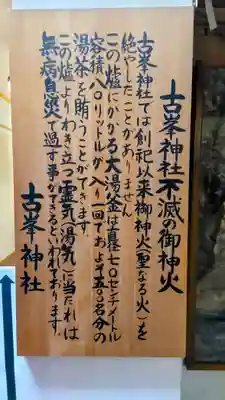 古峯神社不滅の御神火
古峯神社では創祀以来御神火(聖なる火)を
絶やしたことがありません
この炉にかかる大湯釜は直径七〇センチメートル
容積八〇リットルが入り一回でおよそ五〇〇名分の
湯茶を賄うことができます。
この炉よりわき立つ霊気(湯気)に当たれば
無病息災で過す事ができるといわれております。
古峯神社